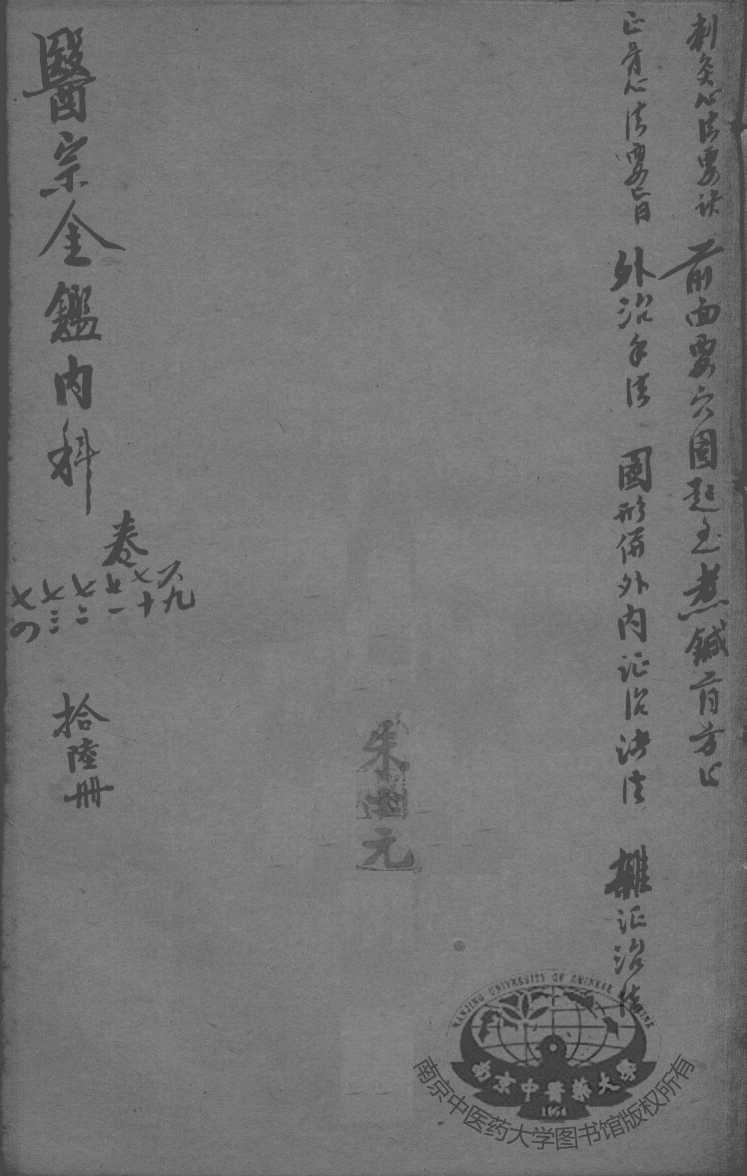 刺灸心法要诀 前面要穴圖起至煮鍼育方止
正骨心法要旨 外治手法 圖形併外内证治法 雜证治法
朱
元
醫宗金鑑内科
卷
六九
七十
七一
七二
七三
七四
拾陸冊
NANJING UNIVERSITY OF CHINESE
南京中醫藥大學
1954
南京中医药大学图书馆版权所有